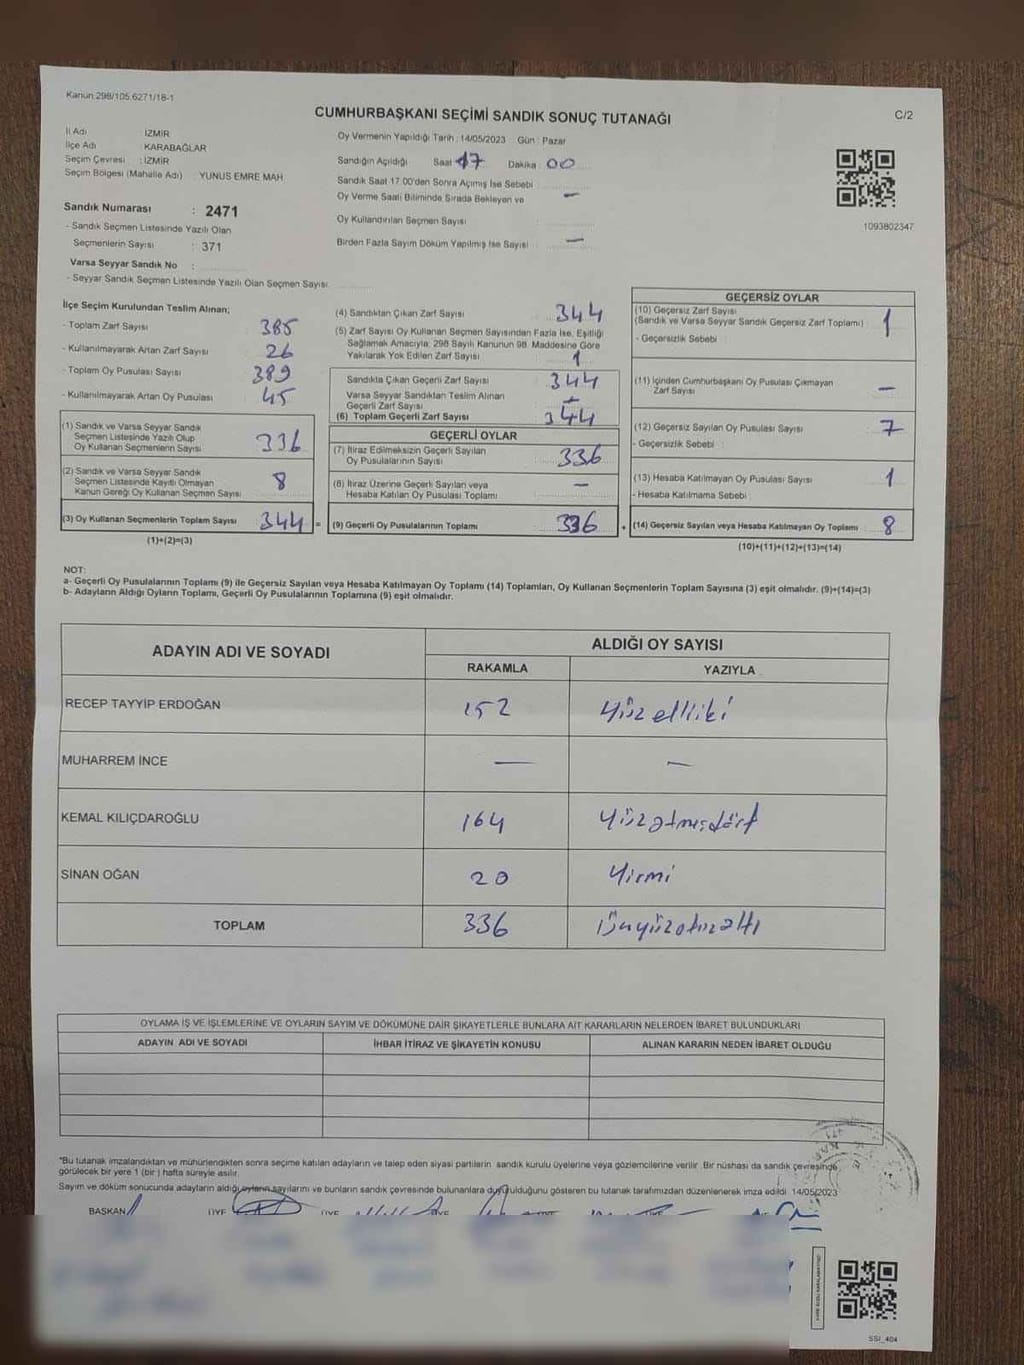 Kanun 298/105.6271/18-1
CUMHURBAŞKANI SEÇİMİ SANDIK SONUÇ TUTANAĞI
C/2
İl Adı İZMİR
İlçe Adı : KARABAĞLAR
Seçim Çevresi : İZMİR
Seçim Bölgesi (Mahalle Adı) YUNUS EMRE MAH
Oy Vermenin Yapıldığı Tarih : 14/05/2023 Gün : Pazar
Sandığın Açıldığı Saat 17 Dakika : 00
Sandık Saat 17.00'den Sonra Açılmış İse Sebebi
Oy Verme Saati Bitiminde Sırada Bekleyen ve —
Oy Kullandırılan Seçmen Sayısı
Birden Fazla Sayım Döküm Yapılmış İse Sayısı : —
1093802347
Sandık Numarası : 2471
- Sandık Seçmen Listesinde Yazılı Olan
Seçmenlerin Sayısı : 371
Varsa Seyyar Sandık No :
- Seyyar Sandık Seçmen Listesinde Yazılı Olan Seçmen Sayısı
İlçe Seçim Kurulundan Teslim Alınan;
- Toplam Zarf Sayısı 385
- Kullanılmayarak Artan Zarf Sayısı 26
- Toplam Oy Pusulası Sayısı 389
- Kullanılmayarak Artan Oy Pusulası 45
(1) Sandık ve Varsa Seyyar Sandık
Seçmen Listesinde Yazılı Olup
Oy Kullanan Seçmenlerin Sayısı 336
(2) Sandık ve Varsa Seyyar Sandık
Seçmen Listesinde Kayıtlı Olmayan
Kanun Gereği Oy Kullanan Seçmen Sayısı 8
(3) Oy Kullanan Seçmenlerin Toplam Sayısı 344 =
(1)+(2)=(3)
(4) Sandıktan Çıkan Zarf Sayısı 344
(5) Zarf Sayısı Oy Kullanan Seçmen Sayısından Fazla İse, Eşitliği
Sağlamak Amacıyla; 298 Sayılı Kanunun 98. Maddesine Göre
Yakılarak Yok Edilen Zarf Sayısı 1
Sandıkta Çıkan Geçerli Zarf Sayısı 344
Varsa Seyyar Sandıktan Teslim Alınan
Geçerli Zarf Sayısı
(6) Toplam Geçerli Zarf Sayısı 344
GEÇERLİ OYLAR
(7) İtiraz Edilmeksizin Geçerli Sayılan
Oy Pusulalarının Sayısı 336
(8) İtiraz Üzerine Geçerli Sayılan veya
Hesaba Katılan Oy Pusulası Toplamı —
(9) Geçerli Oy Pusulalarının Toplamı 336 +
GEÇERSİZ OYLAR
(10) Geçersiz Zarf Sayısı
(Sandık ve Varsa Seyyar Sandık Geçersiz Zarf Toplamı) 1
- Geçersizlik Sebebi
(11) İçinden Cumhurbaşkanı Oy Pusulası Çıkmayan
Zarf Sayısı —
(12) Geçersiz Sayılan Oy Pusulası Sayısı 7
- Geçersizlik Sebebi
(13) Hesaba Katılmayan Oy Pusulası Sayısı 1
- Hesaba Katılmama Sebebi
(14) Geçersiz Sayılan veya Hesaba Katılmayan Oy Toplamı 8
(10)+(11)+(12)+(13)=(14)
NOT:
a- Geçerli Oy Pusulalarının Toplamı (9) ile Geçersiz Sayılan veya Hesaba Katılmayan Oy Toplamı (14) Toplamları, Oy Kullanan Seçmenlerin Toplam Sayısına (3) eşit olmalıdır. (9)+(14)=(3)
b- Adayların Aldığı Oyların Toplamı, Geçerli Oy Pusulalarının Toplamına (9) eşit olmalıdır.
ADAYIN ADI VE SOYADI
ALDIĞI OY SAYISI
RAKAMLA YAZIYLA
RECEP TAYYİP ERDOĞAN 152 Yüz elliiki
MUHARREM İNCE — —
KEMAL KILIÇDAROĞLU 164 Yüzatmışdört
SİNAN OĞAN 20 Yirmi
TOPLAM 336 Üçyüzotuzaltı
OYLAMA İŞ VE İŞLEMLERİNE VE OYLARIN SAYIM VE DÖKÜMÜNE DAİR ŞİKAYETLERLE BUNLARA AİT KARARLARIN NELERDEN İBARET BULUNDUKLARI
ADAYIN ADI VE SOYADI İHBAR İTİRAZ VE ŞİKAYETİN KONUSU ALINAN KARARIN NEDEN İBARET OLDUĞU
*Bu tutanak imzalandıktan ve mühürlendikten sonra seçime katılan adayların ve talep eden siyasi partilerin sandık kurulu üyelerine veya gözlemcilerine verilir. Bir nüshası da sandık çevresinde
görülecek bir yere 1 (bir ) hafta süreyle asılır.
Sayım ve döküm sonucunda adayların aldığı oyların sayılarını ve bunların sandık çevresinde bulunanlara duyurulduğunu gösteren bu tutanak tarafımızdan düzenlenerek imza edildi 14/05/2023
BAŞKAN ÜYE ÜYE ÜYE
SSI_404